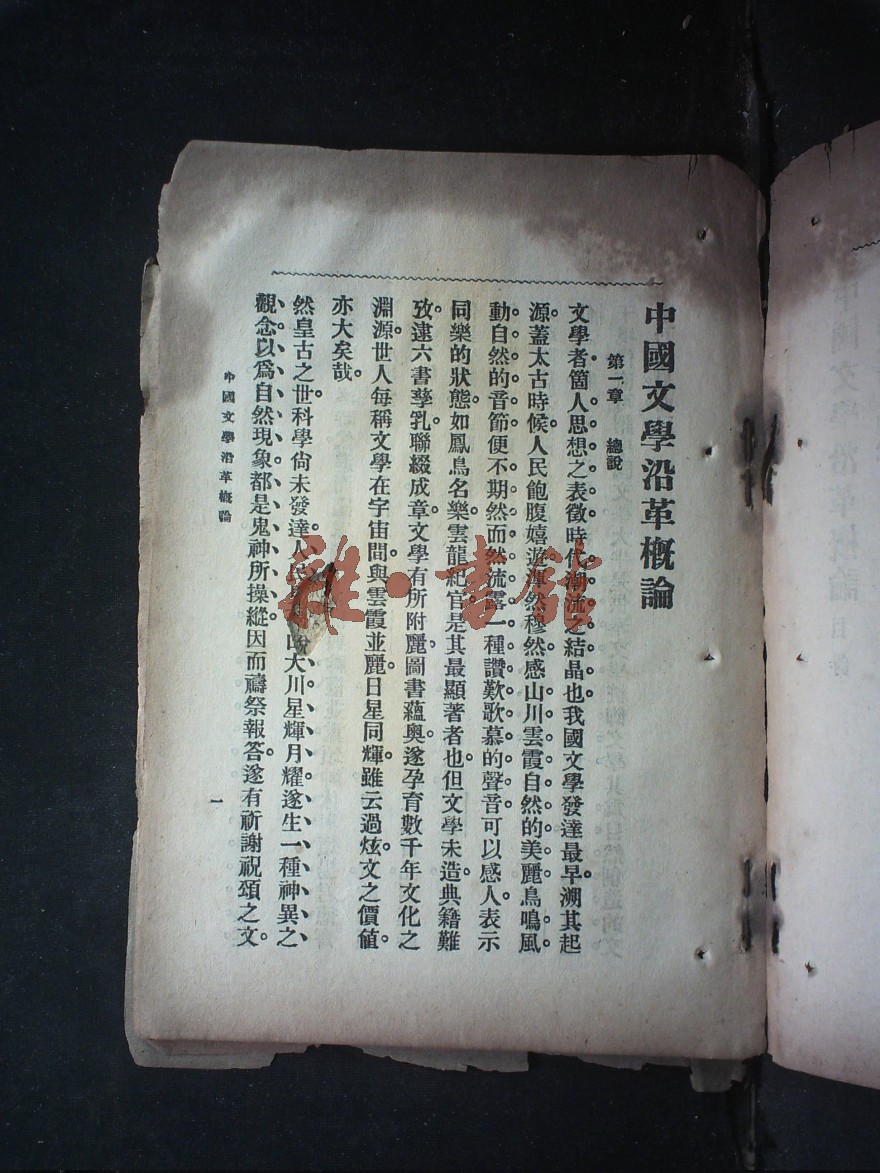 中國文學沿革概論
第一章 總說
文學者箇人思想之表徵時代潮流之結晶也我國文學發達最早溯其起
源蓋太古時候人民飽腹嬉遊渾然穆然感山川雲霞自然的美麗鳥鳴風
動自然的音節便不期然而然流露一種讚歎歌慕的聲音可以感人表示
同樂的狀態如鳳鳥名樂雲龍紀官是其最顯著者也但文學未造典籍難
攷逮六書孳乳聯綴成章文學有所附麗圖書蘊奧遂孕育數千年文化之
淵源世人每稱文學在宇宙間與雲霞並麗日星同輝雖云過炫文之價值
亦大矣哉。
然皇古之世科學尙未發達人民大川星輝月耀遂生一種神異之
觀念以爲自然現象都是鬼神所操縱因而禱祭報答遂有祈謝祝頌之文。
中國文學沿革概論
一
雜·書館